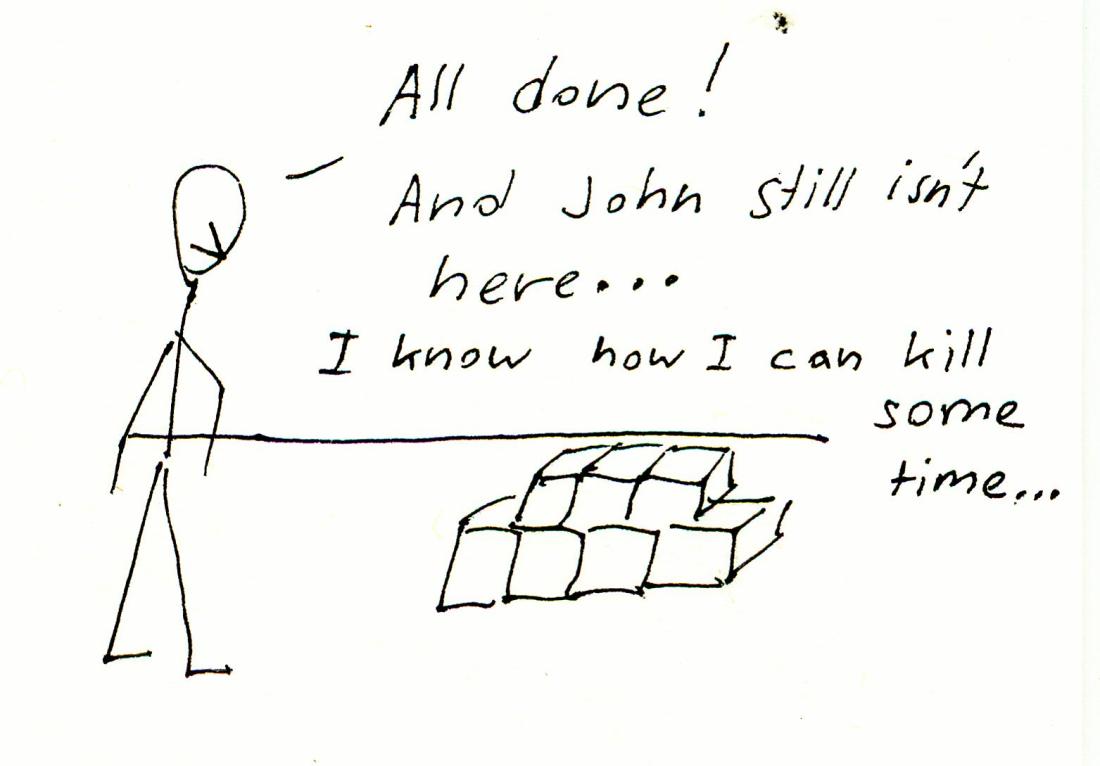 All done!
And John still isn't
here...
I know how I can kill
some
time...